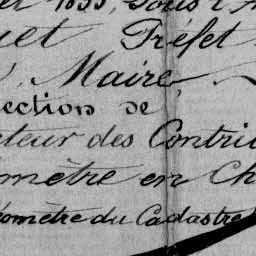 et 1833, sous l'A
uet Préfet
, Maire,
ection de
cteur des Contri
omètre en Ch
éomètre du Cadastre